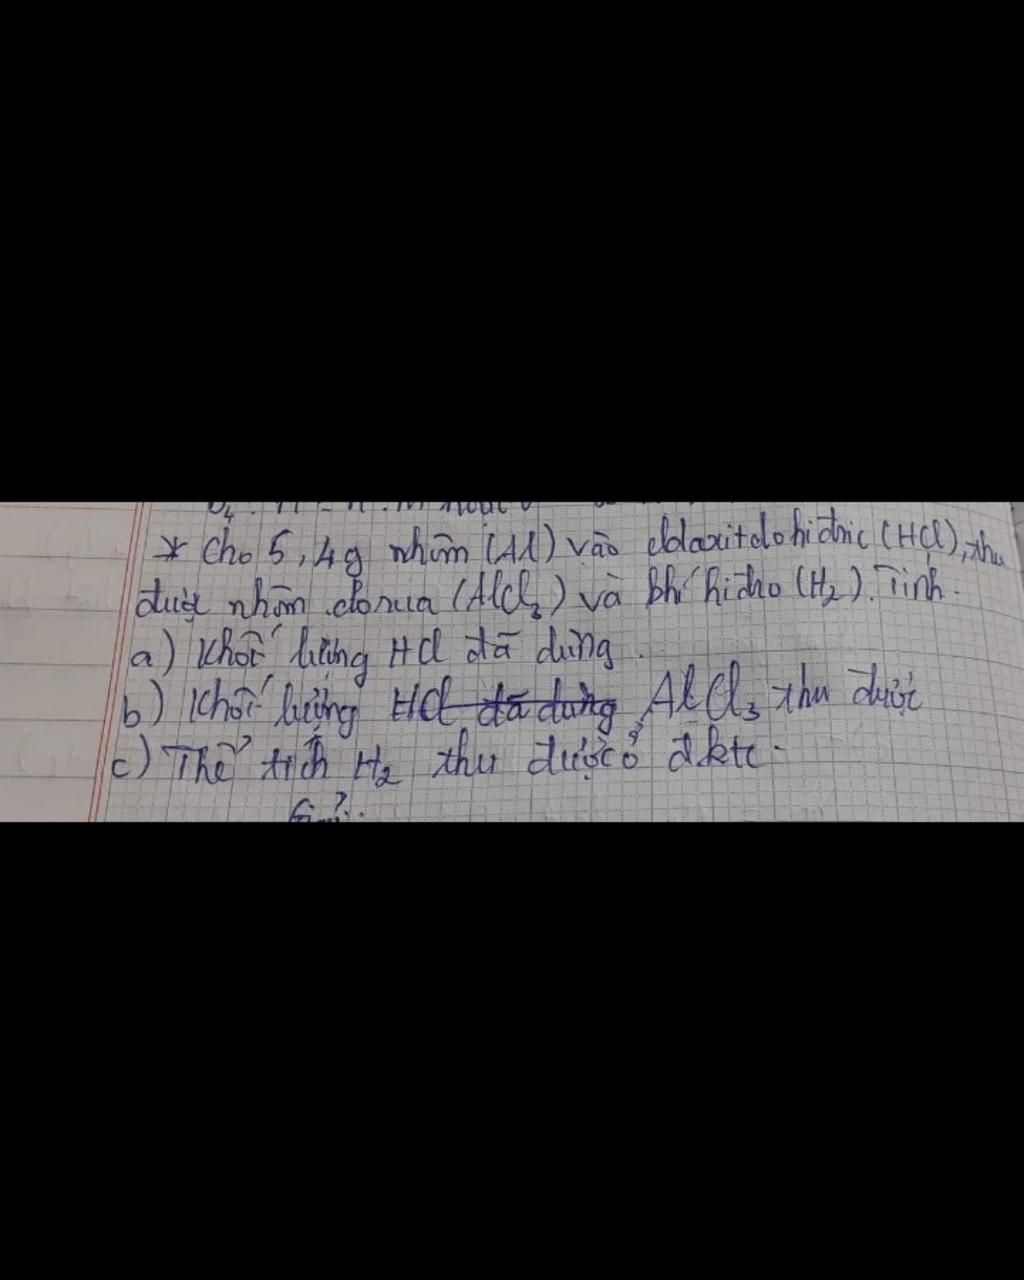 * Cho 5,4g nhôm (Al) vào ddaxitclohiđric (HCl), thu
được nhôm clorua (AlCl3) và khí hiđro (H2). Tính.
a) Khối lượng HCl đã dùng.
b) Khối lượng HCl đã dùng AlCl3 thu được
c) Thể tích H2 thu được ở đktc.